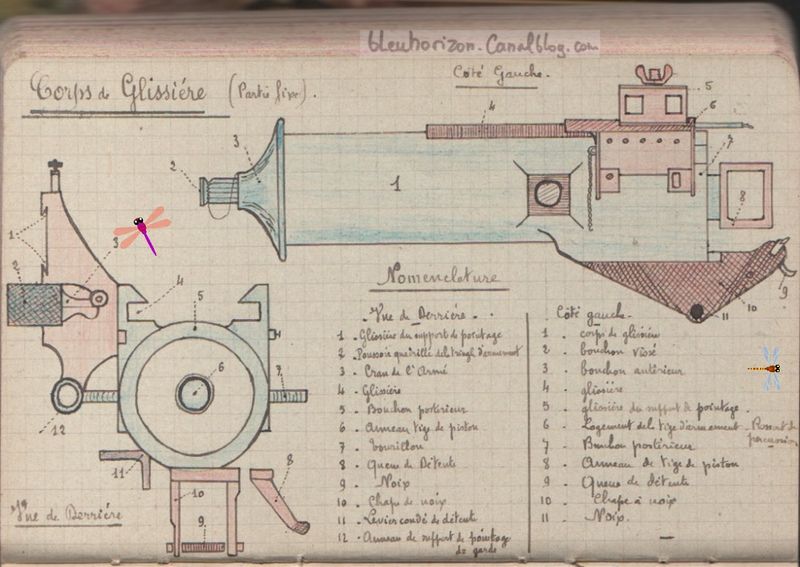 bleuhorizon.Canalblog.com
Corps de Glissière (Partie fixe).
Côté Gauche.
Nomenclature
Vue de Derrière.
1. Glissière du support de pointage
2. Poussoir quadrillé de la tringle d'armement
3. Cran de l'Armé
4. Glissière
5. Bouchon postérieur
6. Anneau tige de piston
7. Tourillon
8. Queue de Détente
9. Noix
10. Chape de noix
11. Levier coudé de détente
12. Anneau de support de pointage
de garde
Côté gauche.
1. corps de glissière
2. bouchon vissé
3. bouchon antérieur
4. glissière
5. glissière du support de pointage.
6. Logement de la tige d'armement - Ressort de
percussion
7. Bouchon postérieur
8. Anneau de tige de piston
9. Queue de détente
10. Chape à noix
11. Noix.
Vue de Derrière
1
2
3
4
5
6
7
8
9
10
11
12
1
2
3
4
5
6
7
8
9
10
11